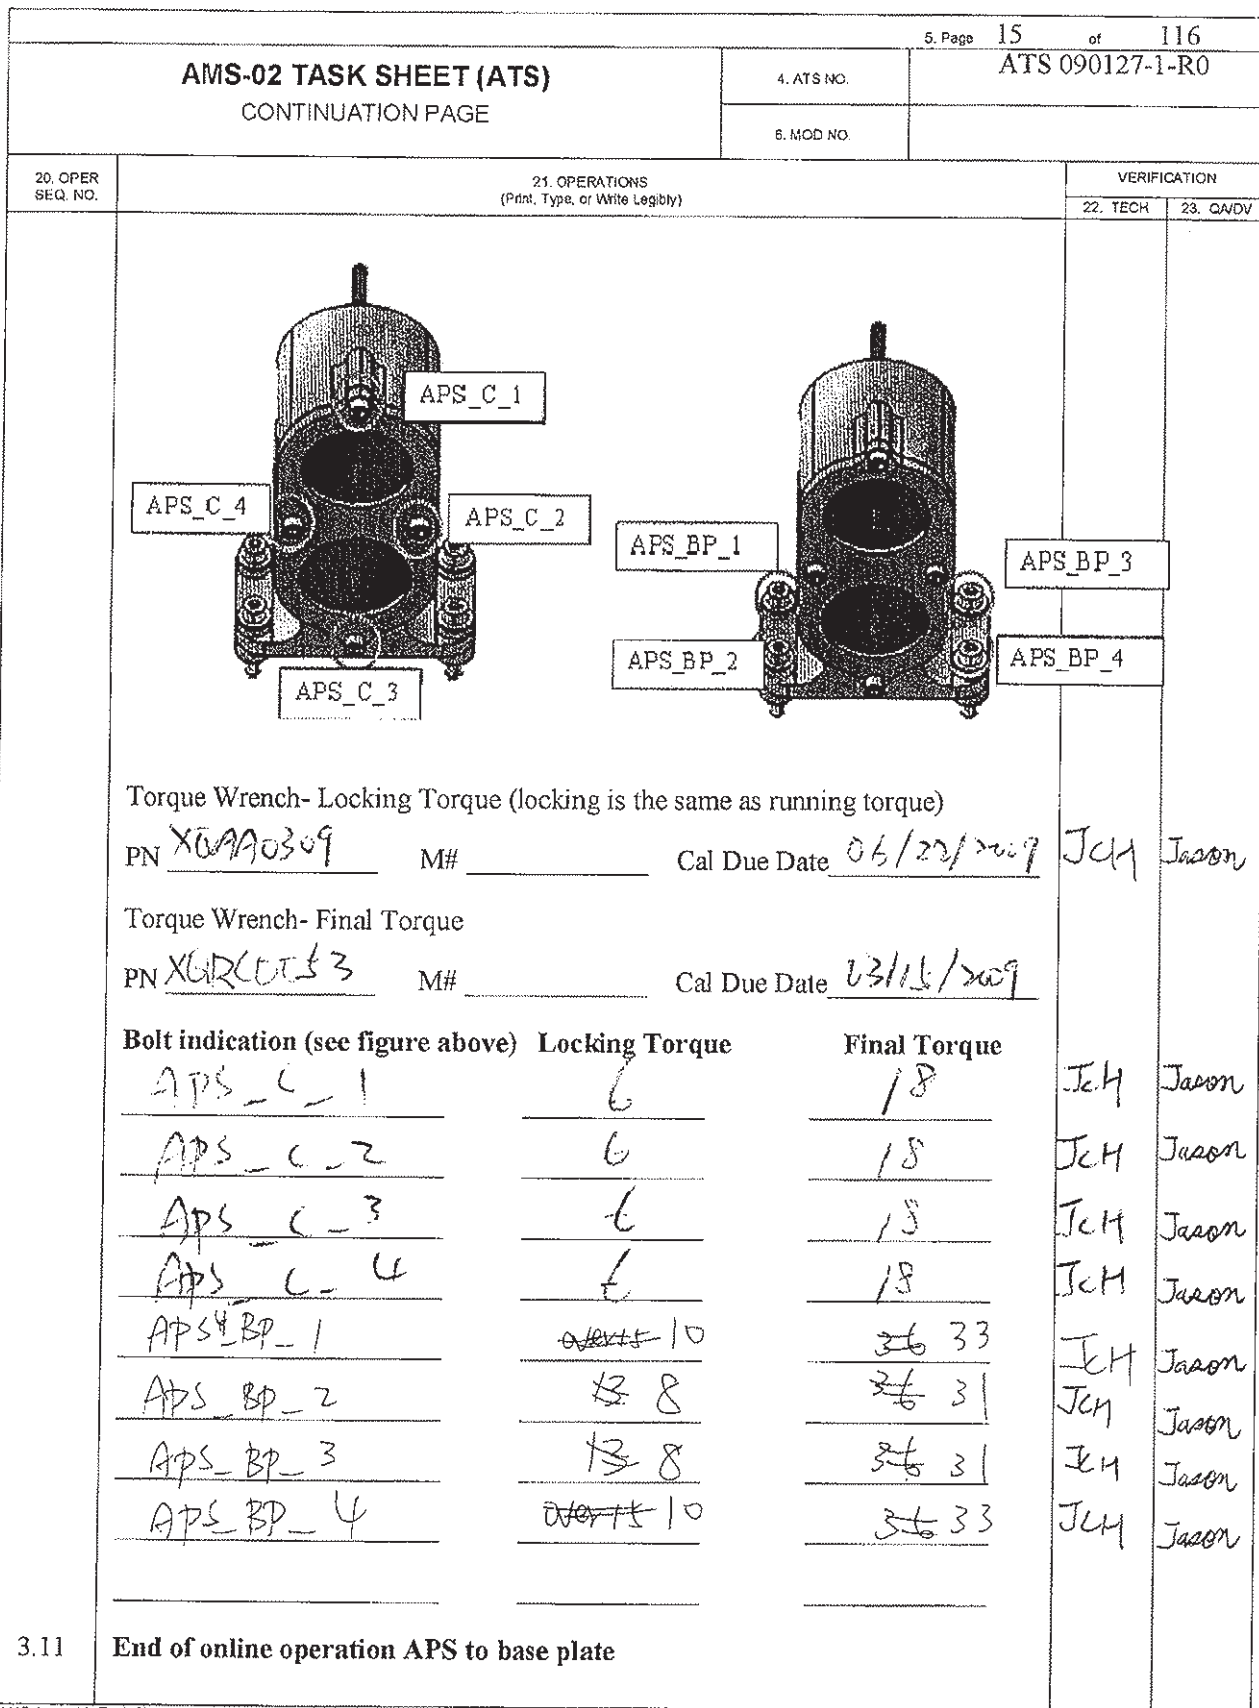 5. Page 15 of 116
AMS-02 TASK SHEET (ATS)
CONTINUATION PAGE
4. ATS NO.
ATS 090127-1-R0
6. MOD NO.
20. OPER
SEQ. NO.
21. OPERATIONS
(Print, Type, or Write Legibly)
VERIFICATION
22. TECH
23. QA/DV
APS_C_1
APS_C_4
APS_C_2
APS_C_3
APS_BP_1
APS_BP_3
APS_BP_2
APS_BP_4
Torque Wrench- Locking Torque (locking is the same as running torque)
PN M# Cal Due Date 06/22/2009 JCH Jason
Torque Wrench- Final Torque
PN M# Cal Due Date 03/15/2009
Bolt indication (see figure above) Locking Torque Final Torque
APS_C_1 6 18 JCH Jason
APS_C_2 6 18 JCH Jason
APS_C_3 6 18 JCH Jason
APS_C_4 6 18 JCH Jason
APS_BP_1 over 15 10 36 33 JCH Jason
APS_BP_2 13 8 36 31 JCH Jason
APS_BP_3 13 8 36 31 JCH Jason
APS_BP_4 over 15 10 36 33 JCH Jason
3.11 End of online operation APS to base plate